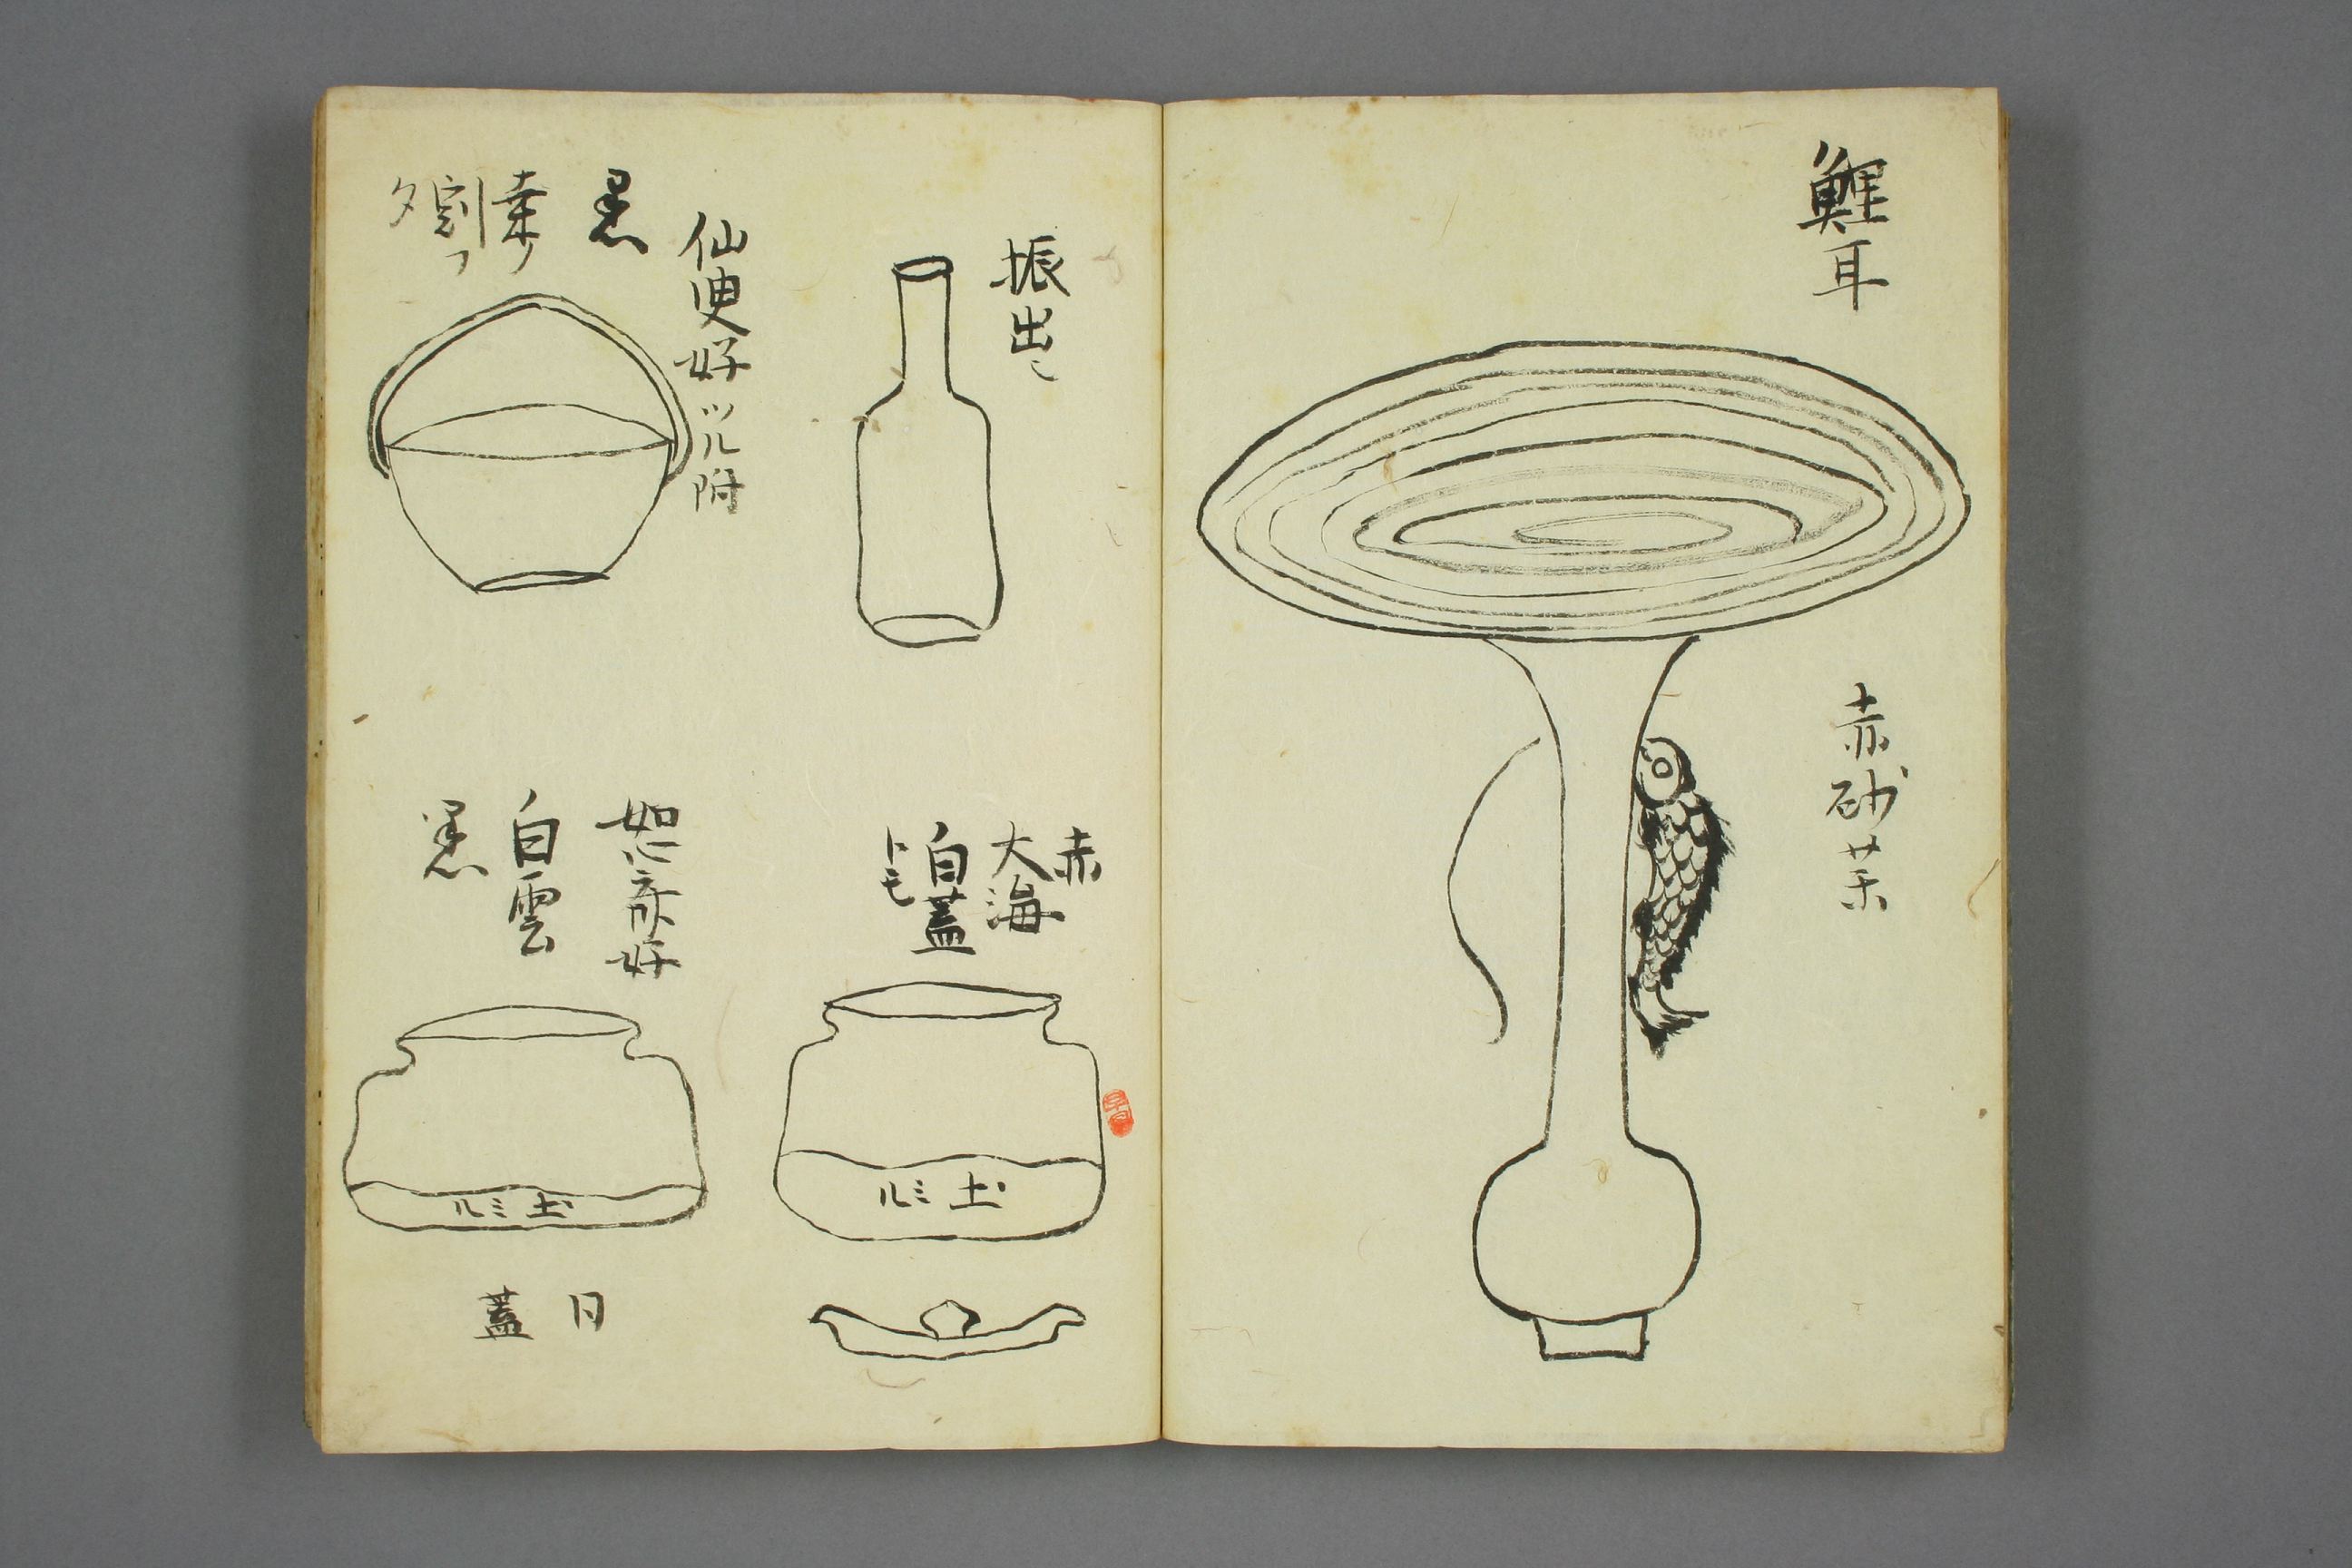 鯉耳
赤砂
振出し
仙叟好ツル附
黒
赤
大海
白蓋
トモ
土ミル
如心斎好
白雲
黒
土ミル
日
蓋